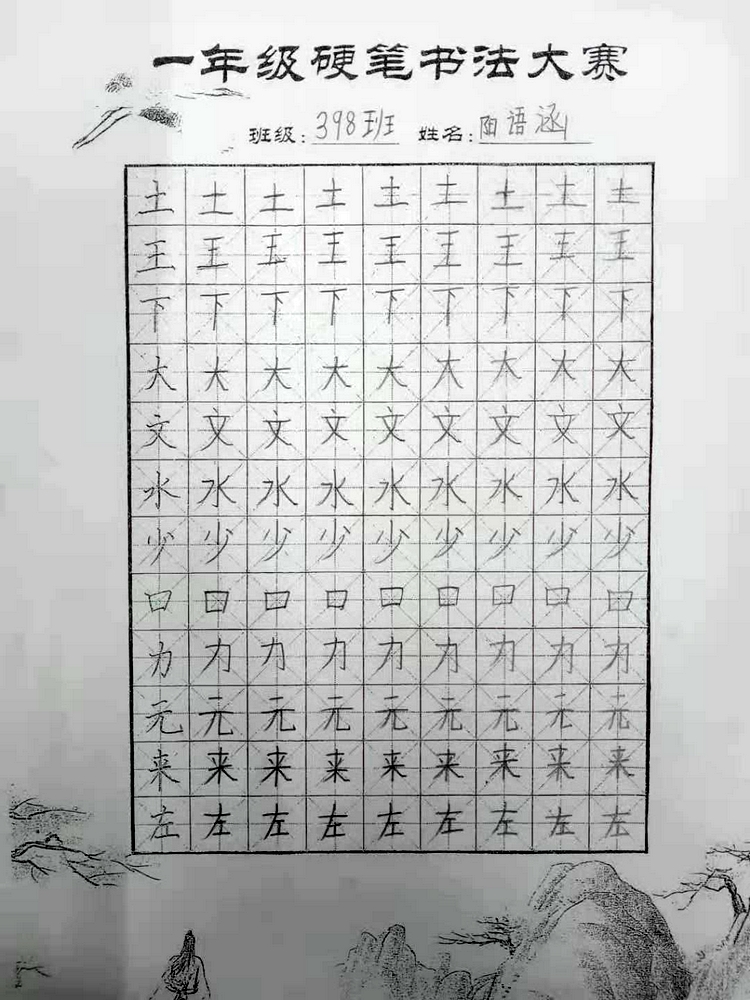 一年级硬笔书法大赛
班级: 398班 姓名: 陶语涵
土土土土土土土土土
王王王王王王王王王
下下下下下下下下下
大大大大大大大大大
文文文文文文文文文
水水水水水水水水水
少少少少少少少少少
口口口口口口口口口
力力力力力力力力力
元元元元元元元元元
来来来来来来来来来
左左左左左左左左左